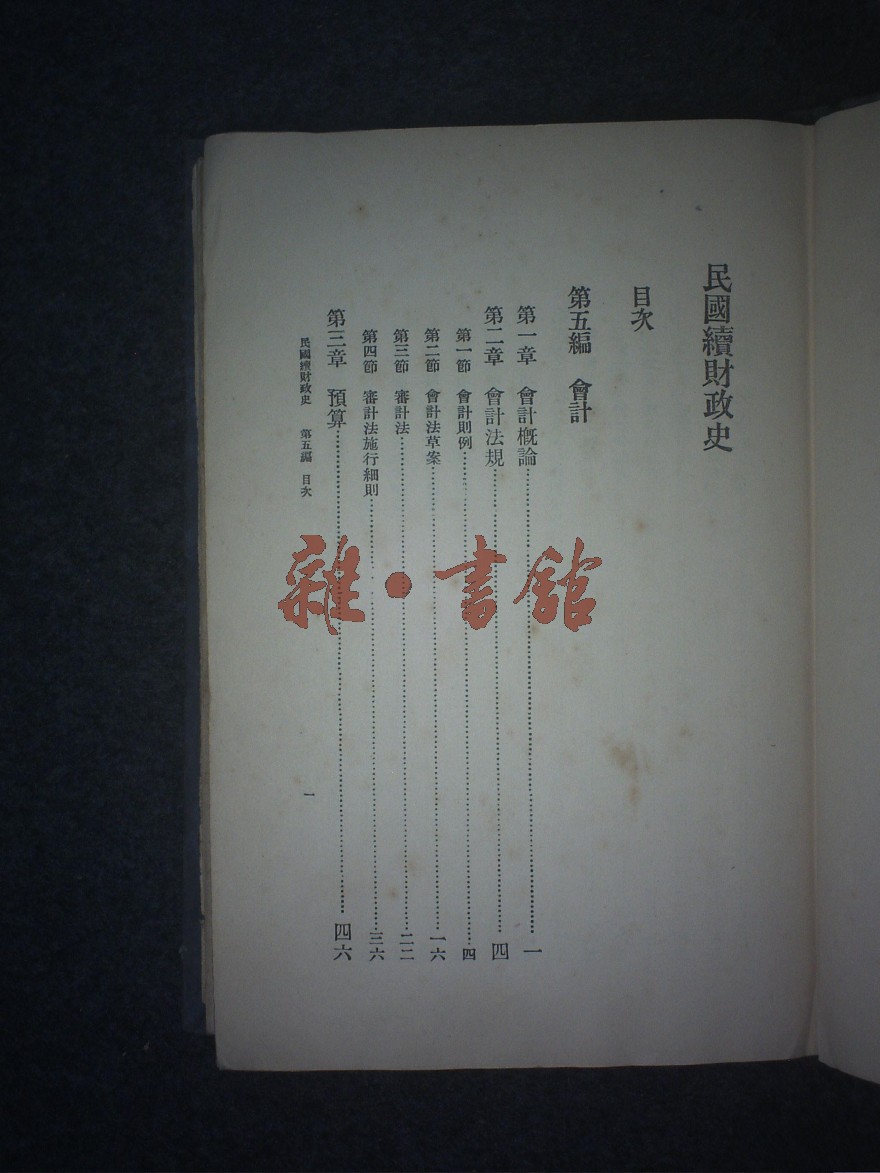 民國續財政史
目次
第五編　會計
第一章　會計概論……一
第二章　會計法規……四
第一節　會計則例……四
第二節　會計法草案……一六
第三節　審計法……二二
第四節　審計法施行細則……三六
第三章　預算……四六
民國續財政史　第五編　目次　一
雜·書館